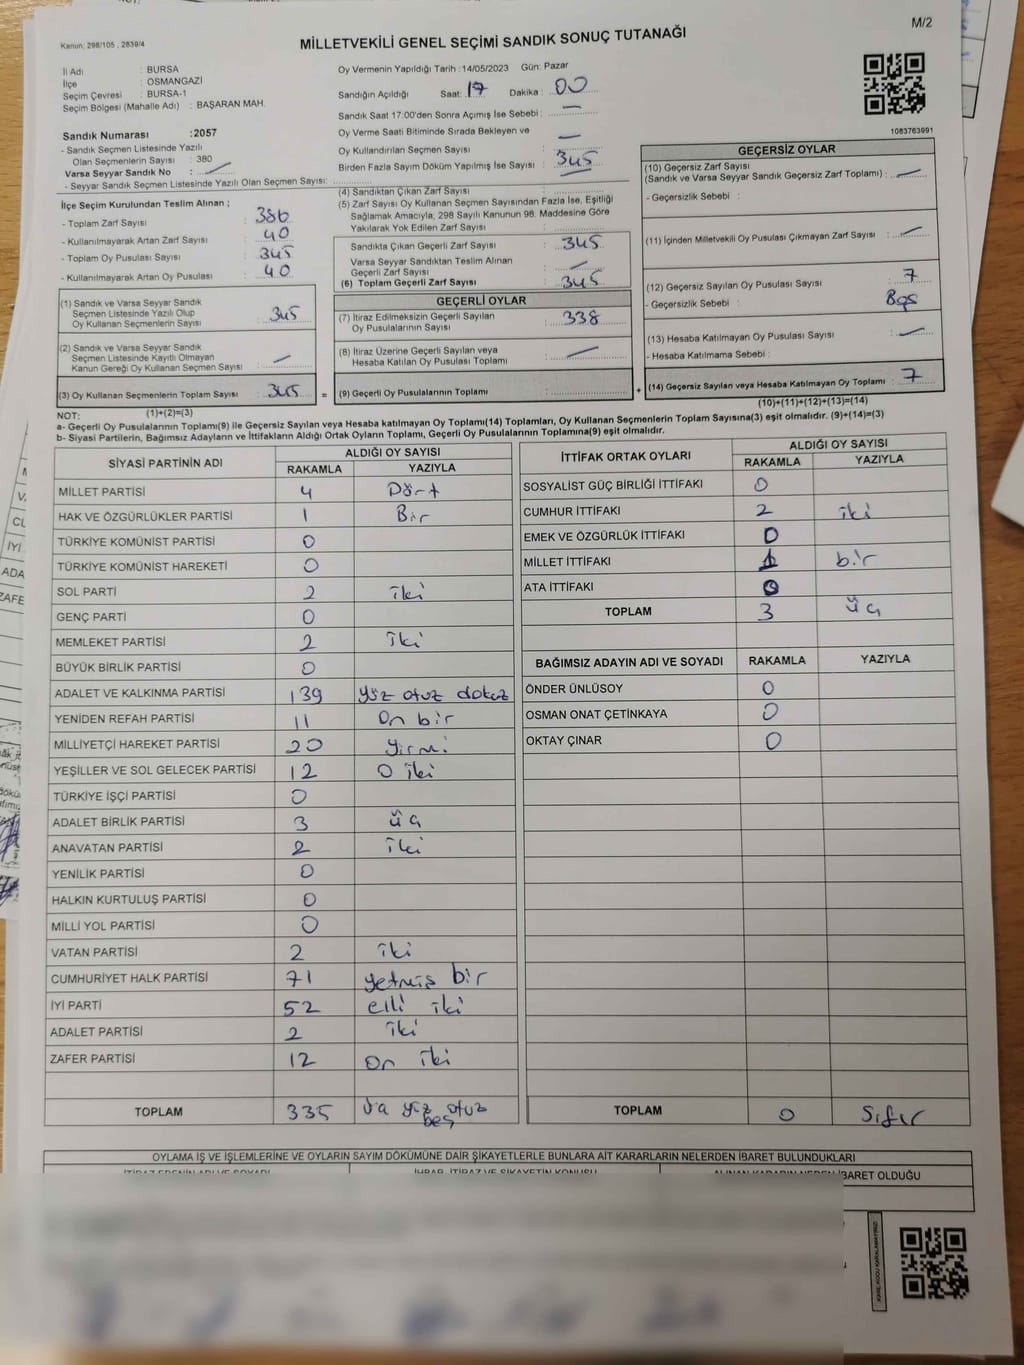 M/2
Kanun: 298/105 , 2839/4
MİLLETVEKİLİ GENEL SEÇİMİ SANDIK SONUÇ TUTANAĞI
İl Adı : BURSA
İlçe : OSMANGAZİ
Seçim Çevresi : BURSA-1
Seçim Bölgesi (Mahalle Adı) : BAŞARAN MAH.
Sandık Numarası :2057
- Sandık Seçmen Listesinde Yazılı
Olan Seçmenlerin Sayısı : 380
Varsa Seyyar Sandık No :
- Seyyar Sandık Seçmen Listesinde Yazılı Olan Seçmen Sayısı:
Oy Vermenin Yapıldığı Tarih :14/05/2023 Gün: Pazar
Sandığın Açıldığı Saat: 17 Dakika : 00
Sandık Saat 17:00'den Sonra Açımış İse Sebebi : —
Oy Verme Saati Bitiminde Sırada Bekleyen ve
Oy Kullandırılan Seçmen Sayısı : —
Birden Fazla Sayım Döküm Yapılmış İse Sayısı : 345
1083763991
İlçe Seçim Kurulundan Teslim Alınan ;
- Toplam Zarf Sayısı : 386
- Kullanılmayarak Artan Zarf Sayısı : 40
- Toplam Oy Pusulası Sayısı : 345
- Kullanılmayarak Artan Oy Pusulası : 40
(1) Sandık ve Varsa Seyyar Sandık
Seçmen Listesinde Yazılı Olup
Oy Kullanan Seçmenlerin Sayısı : 345
(2) Sandık ve Varsa Seyyar Sandık
Seçmen Listesinde Kayıtlı Olmayan
Kanun Gereği Oy Kullanan Seçmen Sayısı : —
(3) Oy Kullanan Seçmenlerin Toplam Sayısı : 345
(1)+(2)=(3)
(4) Sandıktan Çıkan Zarf Sayısı :
(5) Zarf Sayısı Oy Kullanan Seçmen Sayısından Fazla İse, Eşitliği
Sağlamak Amacıyla, 298 Sayılı Kanunun 98. Maddesine Göre
Yakılarak Yok Edilen Zarf Sayısı :
Sandıkta Çıkan Geçerli Zarf Sayısı : 345
Varsa Seyyar Sandıktan Teslim Alınan
Geçerli Zarf Sayısı : —
(6) Toplam Geçerli Zarf Sayısı : 345
GEÇERLİ OYLAR
(7) İtiraz Edilmeksizin Geçerli Sayılan
Oy Pusulalarının Sayısı : 338
(8) İtiraz Üzerine Geçerli Sayılan veya
Hesaba Katılan Oy Pusulası Toplamı : —
= (9) Geçerli Oy Pusulalarının Toplamı :
GEÇERSİZ OYLAR
(10) Geçersiz Zarf Sayısı
(Sandık ve Varsa Seyyar Sandık Geçersiz Zarf Toplamı) : —
- Geçersizlik Sebebi :
(11) İçinden Milletvekili Oy Pusulası Çıkmayan Zarf Sayısı : —
(12) Geçersiz Sayılan Oy Pusulası Sayısı : 7
- Geçersizlik Sebebi : Boş
(13) Hesaba Katılmayan Oy Pusulası Sayısı : —
- Hesaba Katılmama Sebebi :
+ (14) Geçersiz Sayılan veya Hesaba Katılmayan Oy Toplamı : 7
(10)+(11)+(12)+(13)=(14)
NOT:
a- Geçerli Oy Pusulalarının Toplamı(9) ile Geçersiz Sayılan veya Hesaba katılmayan Oy Toplamı(14) Toplamları, Oy Kullanan Seçmenlerin Toplam Sayısına(3) eşit olmalıdır. (9)+(14)=(3)
b- Siyasi Partilerin, Bağımsız Adayların ve İttifakların Aldığı Ortak Oyların Toplamı, Geçerli Oy Pusulalarının Toplamına(9) eşit olmalıdır.
SİYASİ PARTİNİN ADI ALDIĞI OY SAYISI
RAKAMLA YAZIYLA
MİLLET PARTİSİ 4 Dört
HAK VE ÖZGÜRLÜKLER PARTİSİ 1 Bir
TÜRKİYE KOMÜNİST PARTİSİ 0
TÜRKİYE KOMÜNİST HAREKETİ 0
SOL PARTİ 2 iki
GENÇ PARTİ 0
MEMLEKET PARTİSİ 2 iki
BÜYÜK BİRLİK PARTİSİ 0
ADALET VE KALKINMA PARTİSİ 139 yüz otuz dokuz
YENİDEN REFAH PARTİSİ 11 On bir
MİLLİYETÇİ HAREKET PARTİSİ 20 yirmi
YEŞİLLER VE SOL GELECEK PARTİSİ 12 O iki
TÜRKİYE İŞÇİ PARTİSİ 0
ADALET BİRLİK PARTİSİ 3 üç
ANAVATAN PARTİSİ 2 iki
YENİLİK PARTİSİ 0
HALKIN KURTULUŞ PARTİSİ 0
MİLLİ YOL PARTİSİ 0
VATAN PARTİSİ 2 iki
CUMHURİYET HALK PARTİSİ 71 yetmiş bir
İYİ PARTİ 52 elli iki
ADALET PARTİSİ 2 iki
ZAFER PARTİSİ 12 on iki
TOPLAM 335 yüz otuz
beş
İTTİFAK ORTAK OYLARI ALDIĞI OY SAYISI
RAKAMLA YAZIYLA
SOSYALİST GÜÇ BİRLİĞİ İTTİFAKI 0
CUMHUR İTTİFAKI 2 iki
EMEK VE ÖZGÜRLÜK İTTİFAKI 0
MİLLET İTTİFAKI 1 bir
ATA İTTİFAKI 0
TOPLAM 3 üç
BAĞIMSIZ ADAYIN ADI VE SOYADI RAKAMLA YAZIYLA
ÖNDER ÜNLÜSOY 0
OSMAN ONAT ÇETİNKAYA 0
OKTAY ÇINAR 0
TOPLAM 0 Sıfır
OYLAMA İŞ VE İŞLEMLERİNE VE OYLARIN SAYIM DÖKÜMÜNE DAİR ŞİKAYETLERLE BUNLARA AİT KARARLARIN NELERDEN İBARET BULUNDUKLARI
İTİRAZ EDENİN ADI VE SOYADI İHBAR, İTİRAZ VE ŞİKAYETİN KONUSU ALINAN KARARIN NEDEN İBARET OLDUĞU